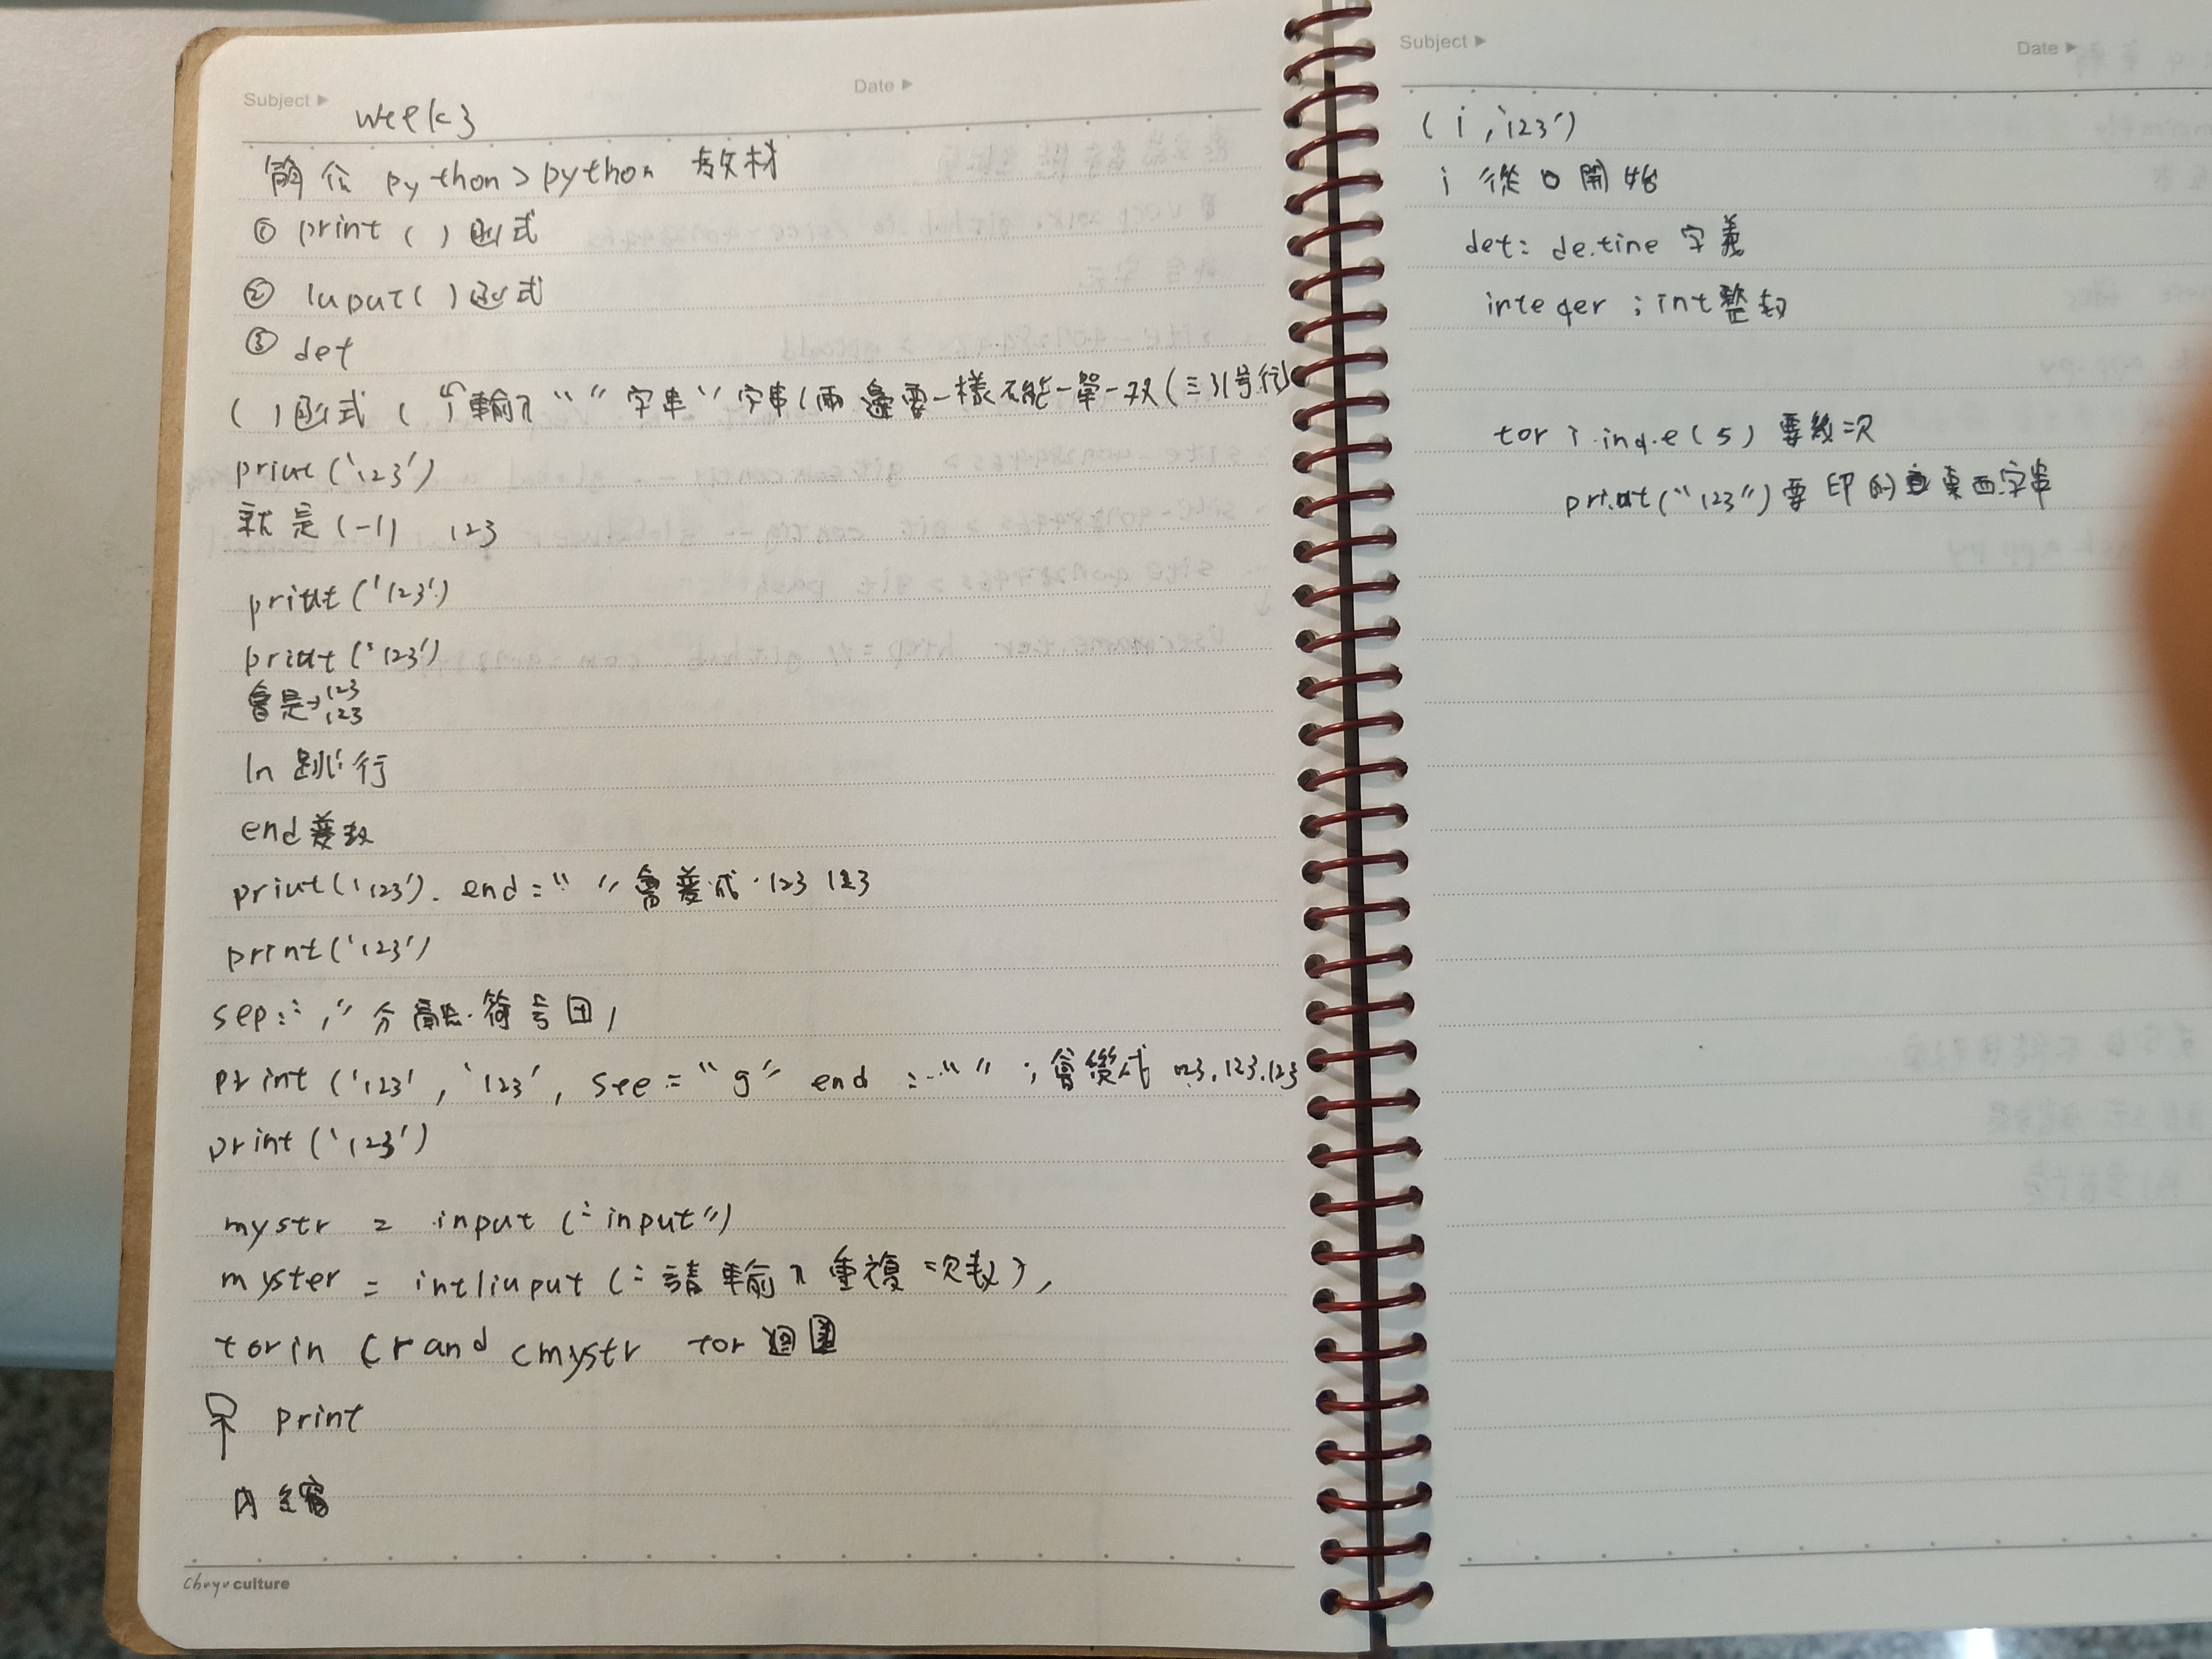 Subject ▶ week3
Date ▶
簡介 python > python 教材
① print ( ) 函式
② input ( ) 函式
③ det
( ) 函式 ( 輸入 " " 字串 " 字串 (兩邊要一樣不能一單一双 (三引号行)
print ('123')
就是 (-1) 123
print ('123')
print ('123')
會是→ 123
123
ln 跳行
end 變数
print ('123'). end = " " 會變成 123 123
print ('123')
sep = "," 分離符号因,
print ('123', '123', see = "g" end = " " ; 會變成 123.123.123
print ('123')
mystr = input ("input")
myster = int(iuput (" 請輸入重複次数),
torin (rand (mystr tor 迴圈
print
內縮
Chuyu culture
Subject ▶
Date ▶
( i , '123')
i 從 0 開始
det: de.tine 字義
integer ; int 整数
tor i inq.e (5) 要幾次
print ("123") 要印的東西字串